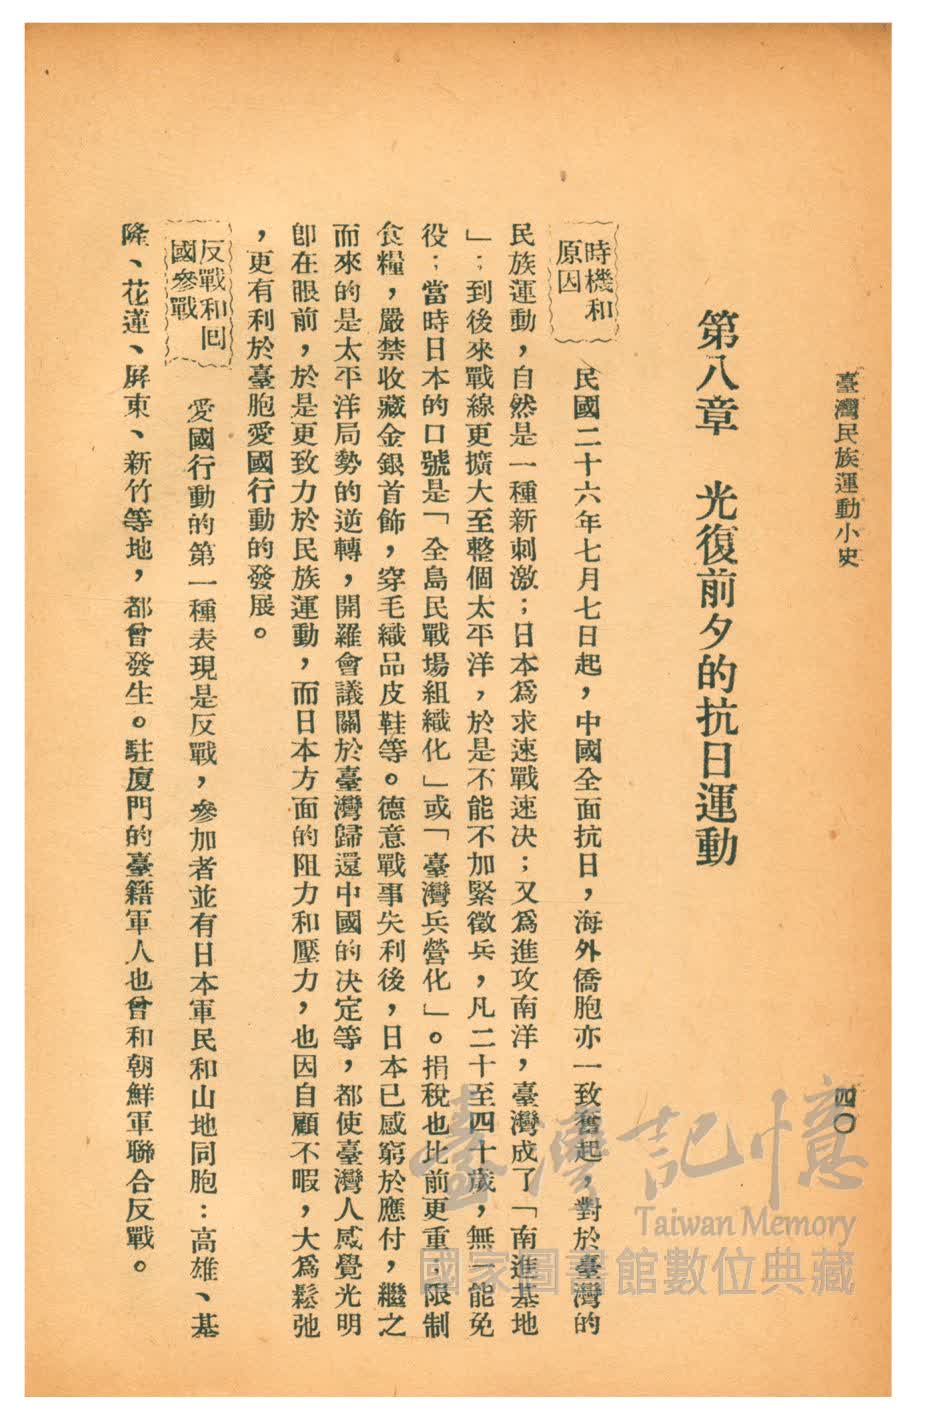 臺灣民族運動小史
四〇
第八章　光復前夕的抗日運動
時機和
原因
民國二十六年七月七日起，中國全面抗日，海外僑胞亦一致奮起，對於臺灣的
民族運動，自然是一種新刺激；日本爲求速戰速决；又爲進攻南洋，臺灣成了「南進基地
」；到後來戰線更擴大至整個太平洋，於是不能不加緊徵兵，凡二十至四十歲，無一能免
役；當時日本的口號是「全島民戰場組織化」或「臺灣兵營化」。捐稅也比前更重，限制
食糧，嚴禁收藏金銀首飾，穿毛織品皮鞋等。德意戰事失利後，日本已感窮於應付，繼之
而來的是太平洋局勢的逆轉，開羅會議關於臺灣歸還中國的决定等，都使臺灣人感覺光明
卽在眼前，於是更致力於民族運動，而日本方面的阻力和壓力，也因自顧不暇，大爲鬆弛
，更有利於臺胞愛國行動的發展。
反戰和回
國參戰
愛國行動的第一種表現是反戰，參加者並有日本軍民和山地同胞：高雄、基
隆、花蓮、屏東、新竹等地，都曾發生。駐廈門的臺籍軍人也曾和朝鮮軍聯合反戰。
臺灣記憶
Taiwan Memory
國家圖書館數位典藏